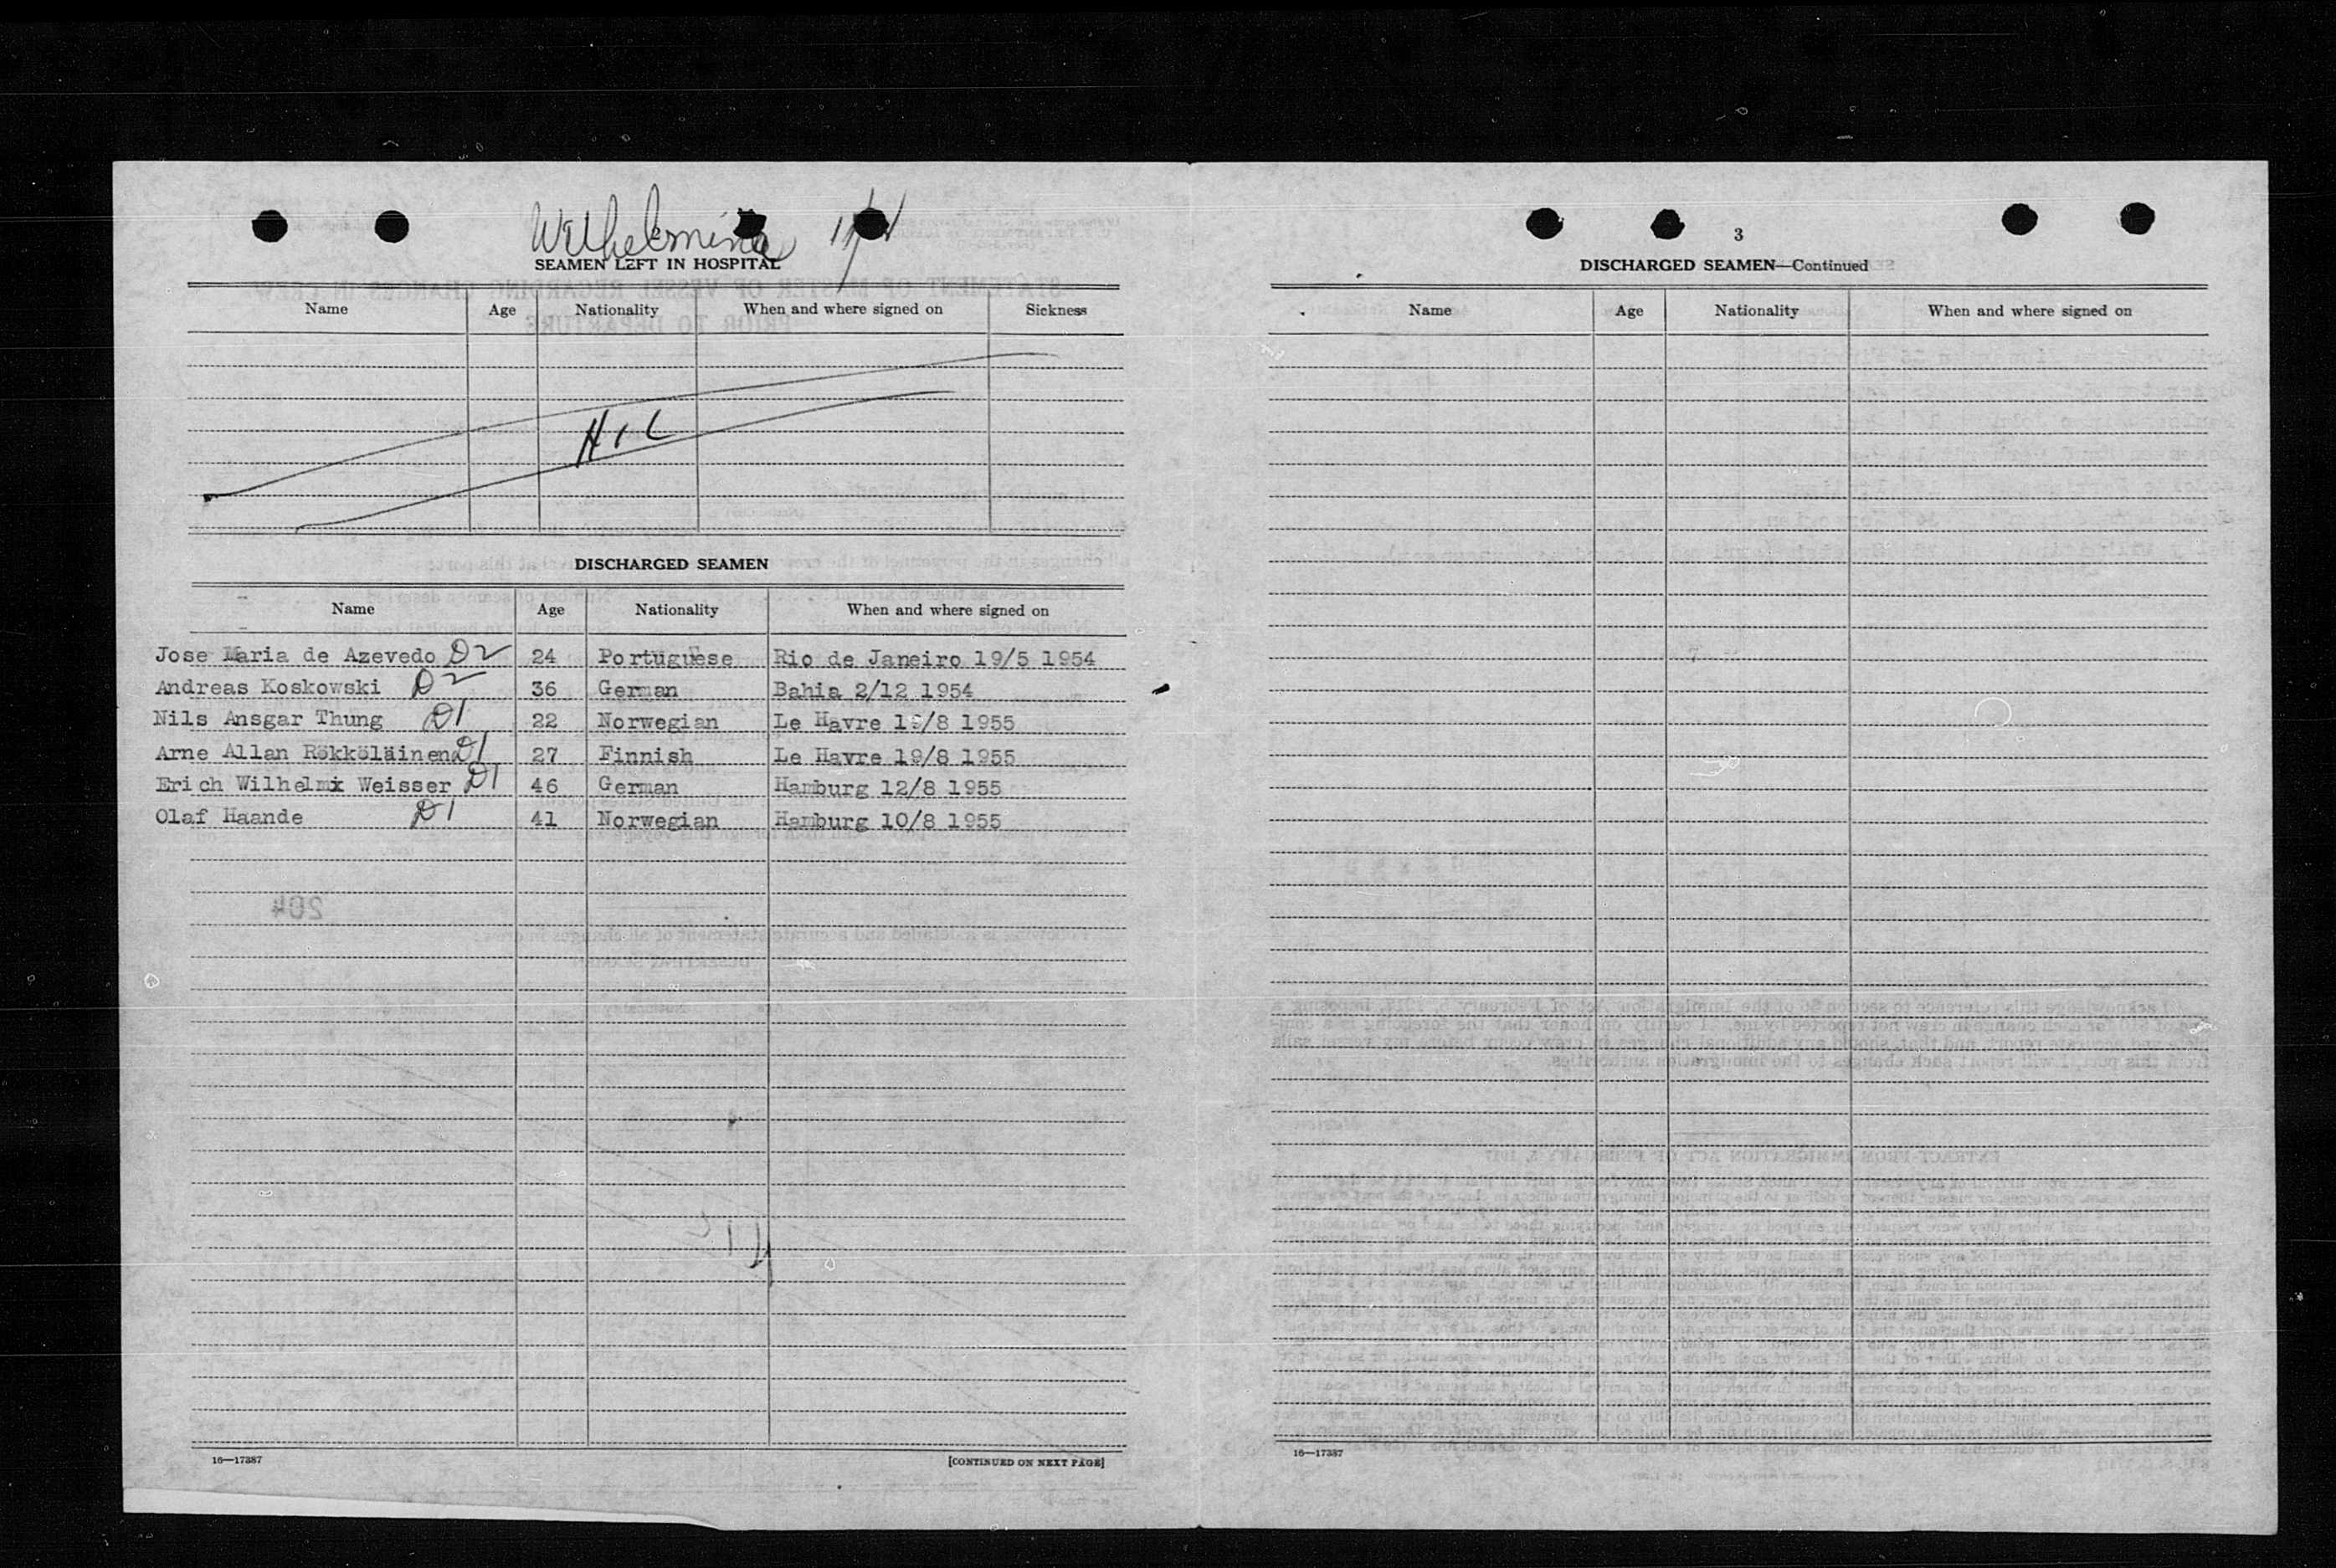 Wilhelmina
SEAMEN LEFT IN HOSPITAL
Name Age Nationality When and where signed on Sickness
DISCHARGED SEAMEN
Name Age Nationality When and where signed on
Jose Maria de Azevedo D2 24 Portuguese Rio de Janeiro 19/5 1954
Andreas Koskowski D2 36 German Bahia 2/12 1954
Nils Ansgar Thung D1 22 Norwegian Le Havre 19/8 1955
Arne Allan Rökköläinen D1 27 Finnish Le Havre 19/8 1955
Erich Wilhelm Weisser D1 46 German Hamburg 12/8 1955
Olaf Haande D1 41 Norwegian Hamburg 10/8 1955
204
16—17387 [CONTINUED ON NEXT PAGE]
3
DISCHARGED SEAMEN—Continued
Name Age Nationality When and where signed on
16—17387